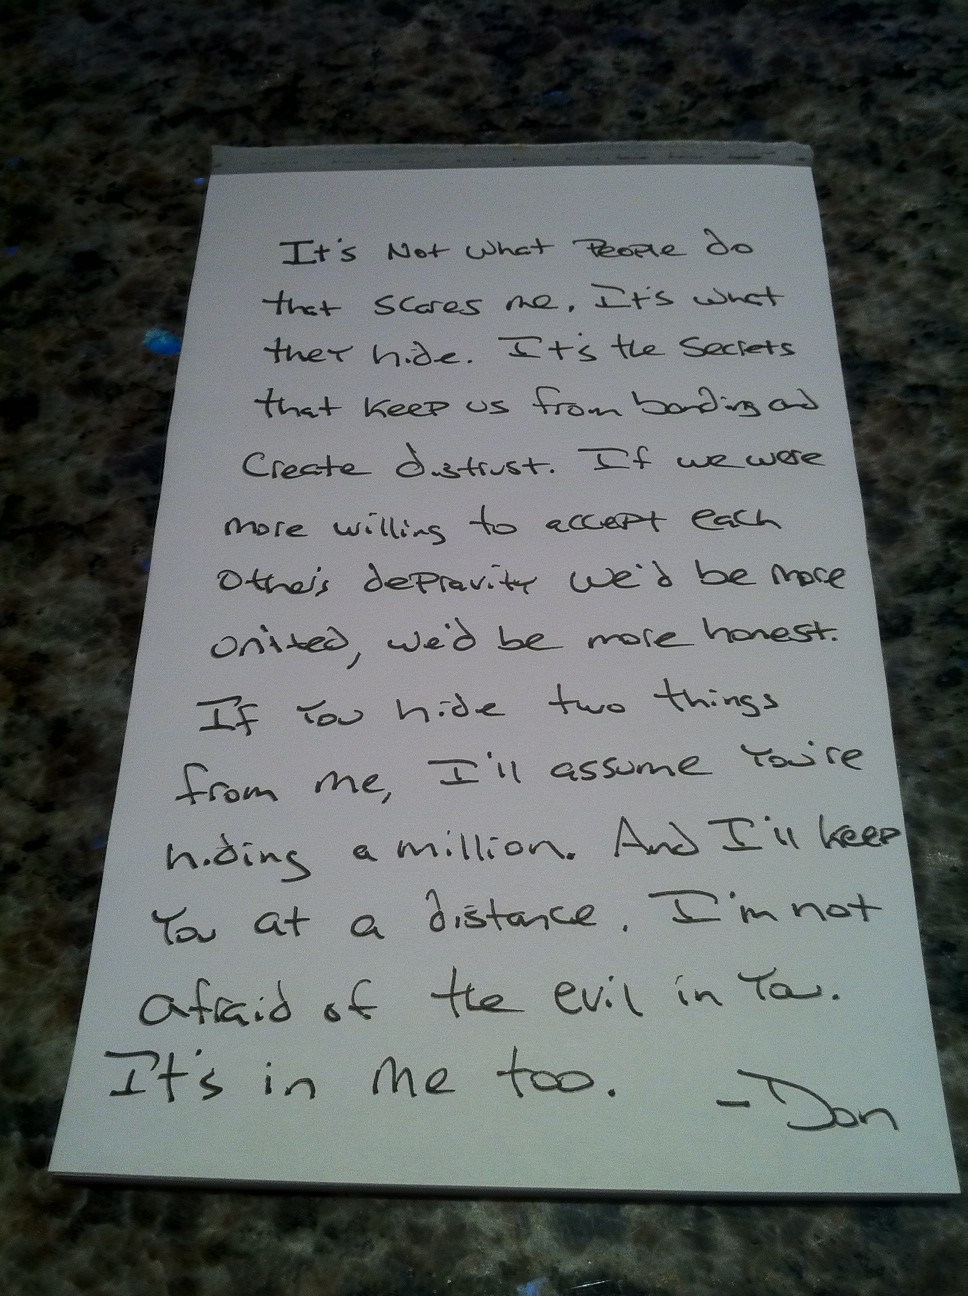 It's Not what People do
that scares me. It's what
they hide. It's the secrets
that keep us from bonding and
create distrust. If we were
more willing to accept each
other's depravity we'd be more
united, we'd be more honest.
If you hide two things
from me, I'll assume you're
hiding a million. And I'll keep
you at a distance. I'm not
afraid of the evil in you.
It's in me too. -Don